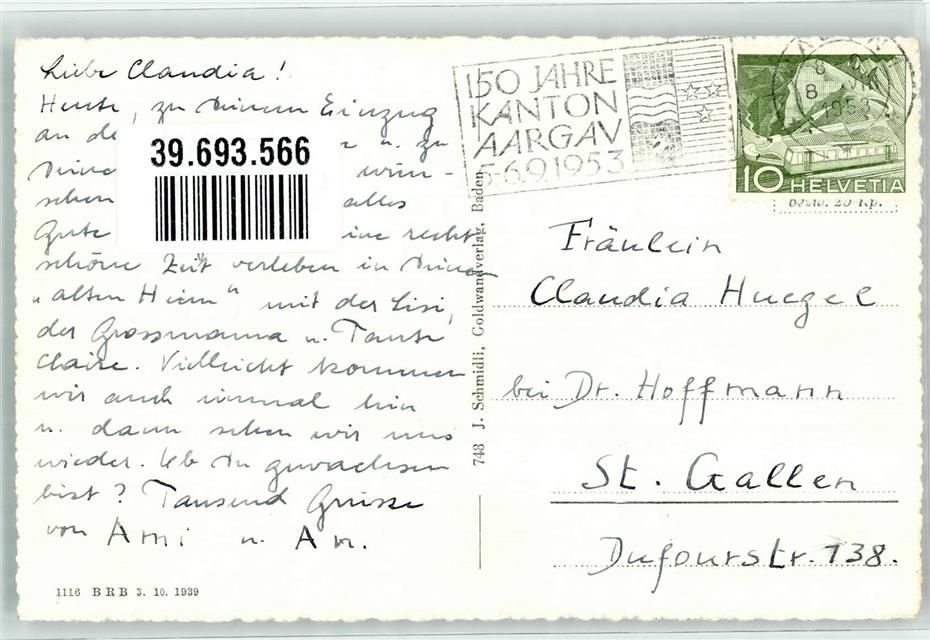 Liebe Claudia!
Heute, zu Deinem Einzug
an de u. zu
Deine wün-
schen alles
Gute ine recht
schöne Zeit verleben in Deinem
"alten Heim" mit der Lisi,
der Grossmama u. Tante
Claire. Vielleicht kommen
wir auch einmal hin
u. dann sehen wir uns
wieder. Ob Du gewachsen
bist? Tausend Grüsse
von Ami u.
39.693.566
1116 B R B 3. 10. 1939
748 J. Schmidli, Goldwandverlag, Baden
150 JAHRE
KANTON
AARGAV
5-6.9.1953
1953
10 HELVETIA
20 Rp.
Fräulein
Claudia Huegel
bei Dr. Hoffmann
St. Gallen
Dufourstr. 138.